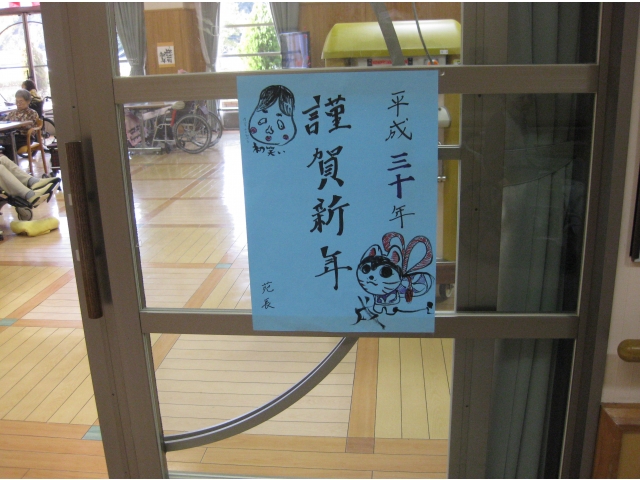 平成三十年
謹賀新年
初笑い
戌
苑長